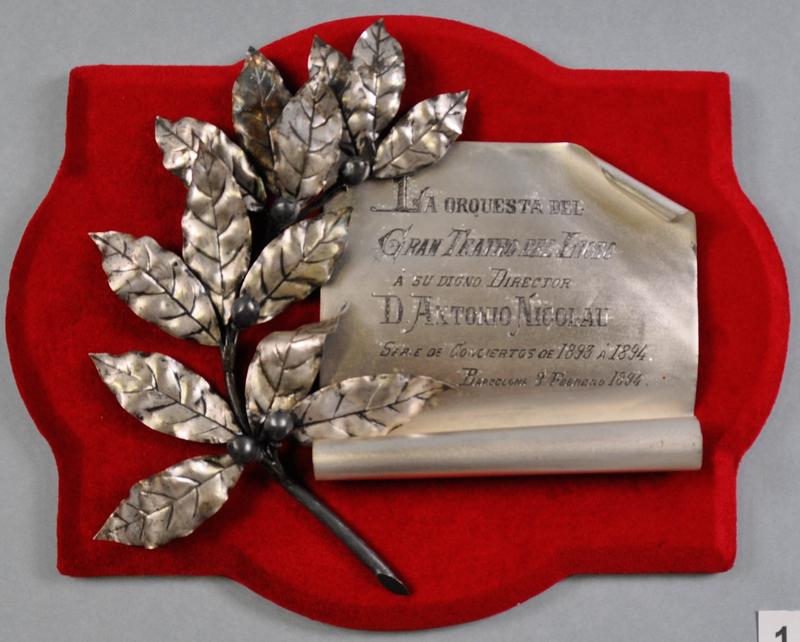 La orquesta del
Gran Teatro del Liceo
a su digno Director
D. Antonio Nicolau
Serie de Conciertos de 1893 à 1894.
Barcelona 9 Febrero 1894.
1